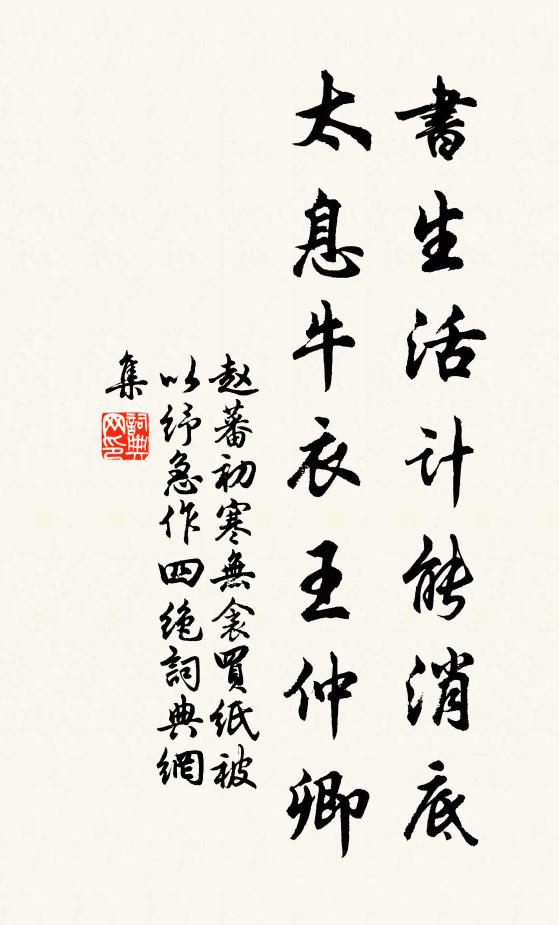 書生活計能消底
太息牛衣王仲卿
赵蕃初寒無衾買紙被
以紓急作四絶詞典網
集
詞典
网印